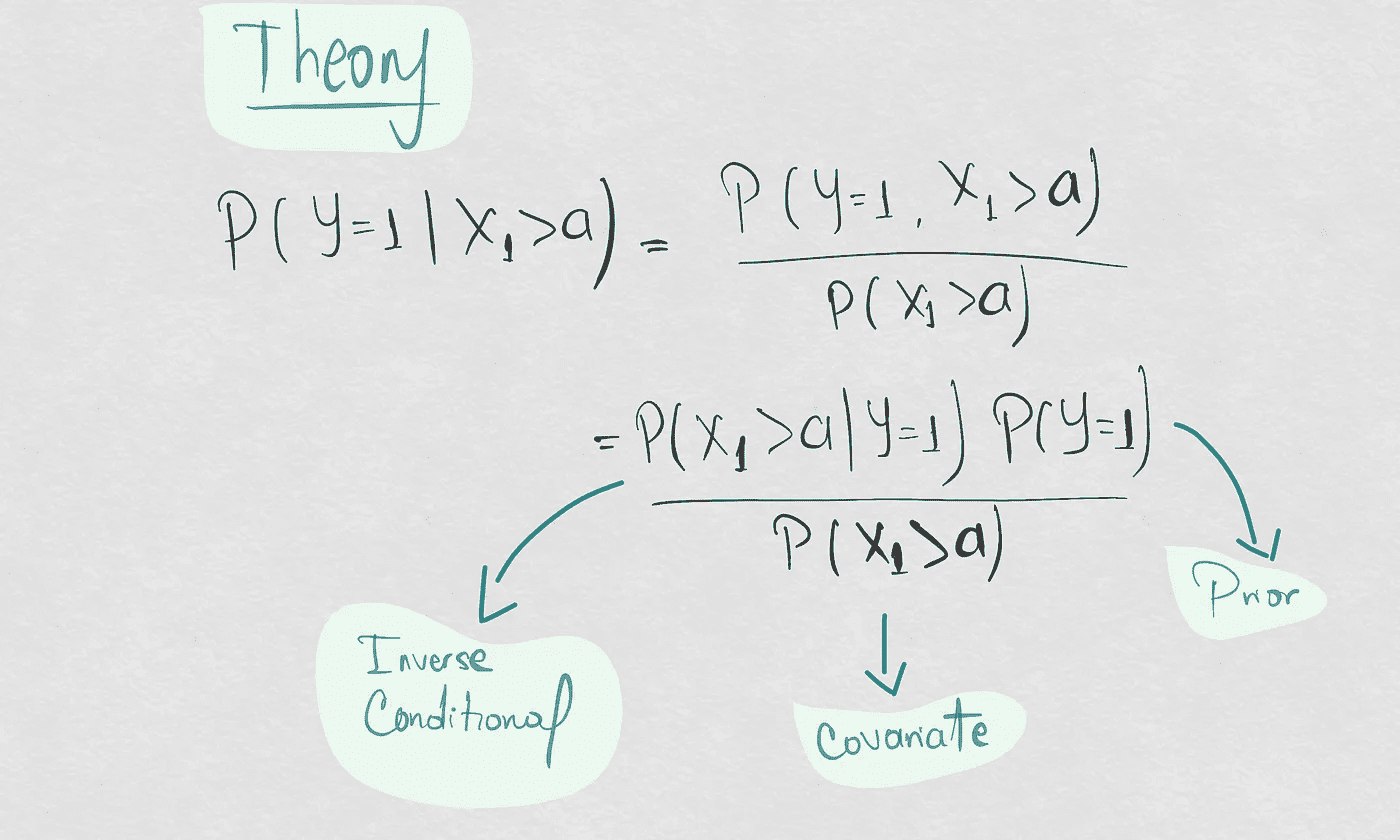 Theory
P(Y=1 | X₁>a) = P(Y=1, X₁>a)
P(X₁>a)
= P(X₁>a | Y=1) P(Y=1)
P(X₁>a)
Prior
Inverse
Conditional
Covariate